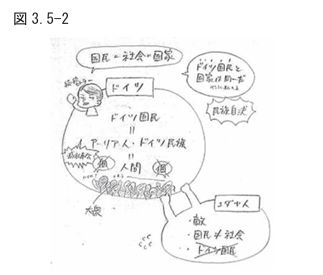 図 3.5-2
国民=社会=国家
ドイツ国民と
国家は同一だ
民族自決
ドイツ
ドイツ国民
=
アーリア人・ドイツ民族
=
人間
個
個
大衆
ユダヤ人
・敵
・国民≠社会
・ドイツ国民